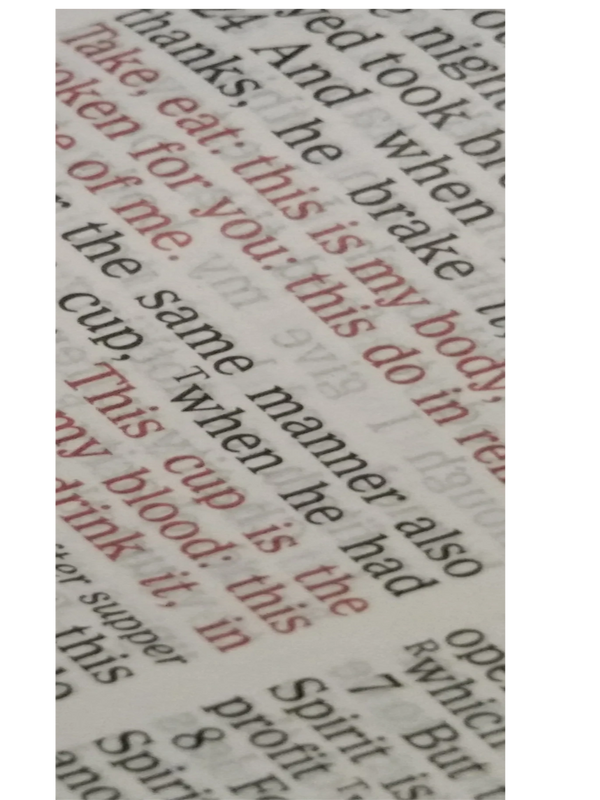 night
yed took
24 And when
thanks, he brake
Take, eat: this is my body,
oken for you: this do in
of me.
the same manner also
cup, ᵀwhen he had
This cup is the
my blood: this
drink it, in
ter supper
this
ope
ᴿwhich
7 But
Spirit is
profit
8
Spiri